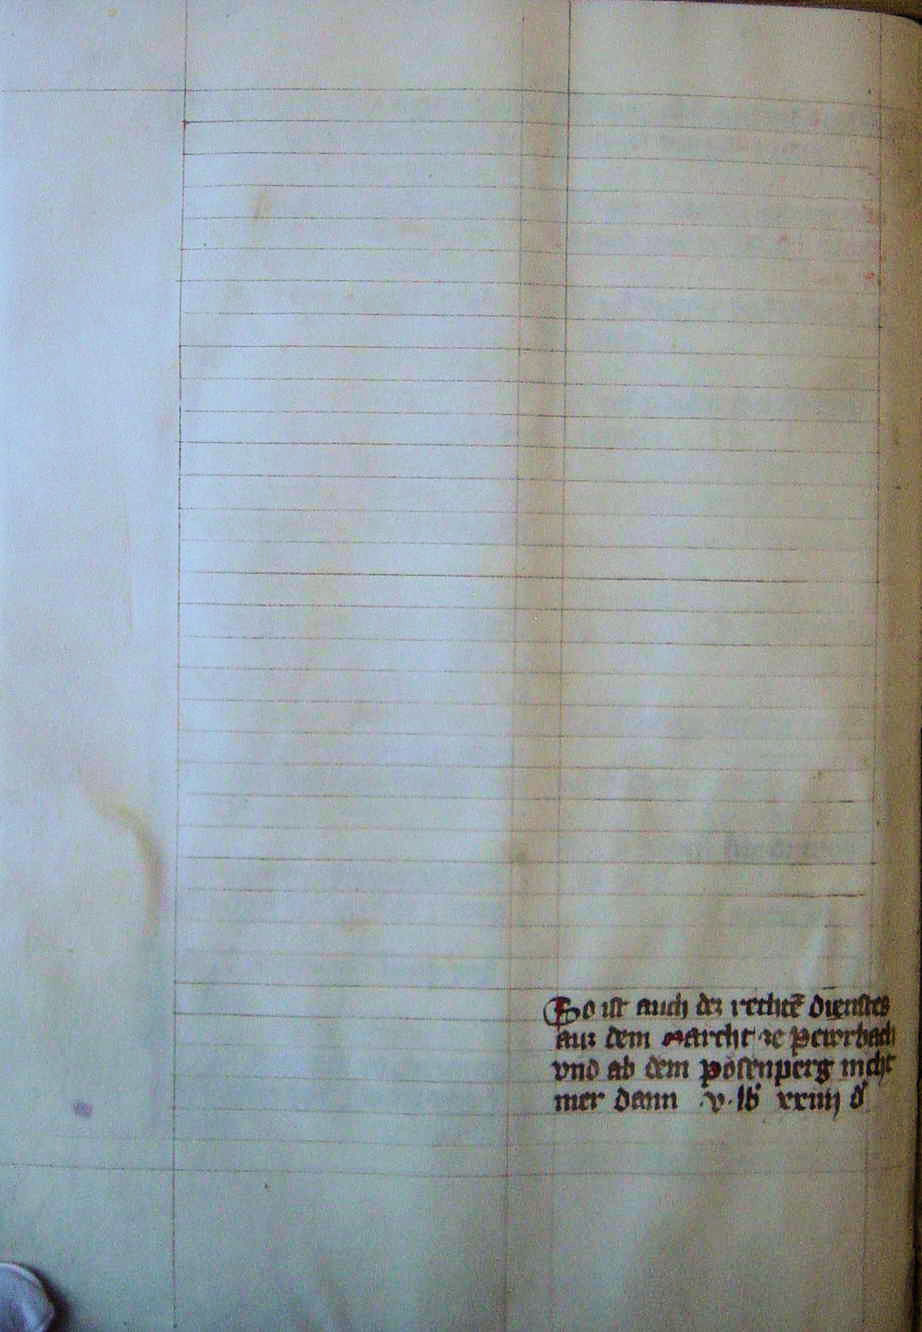 So ist auch dez rechtē dienstes
auz dem Marcht ze Pewrbach
vnd ab dem Posenperg nicht
mer dann ·v· lb xxiiij d